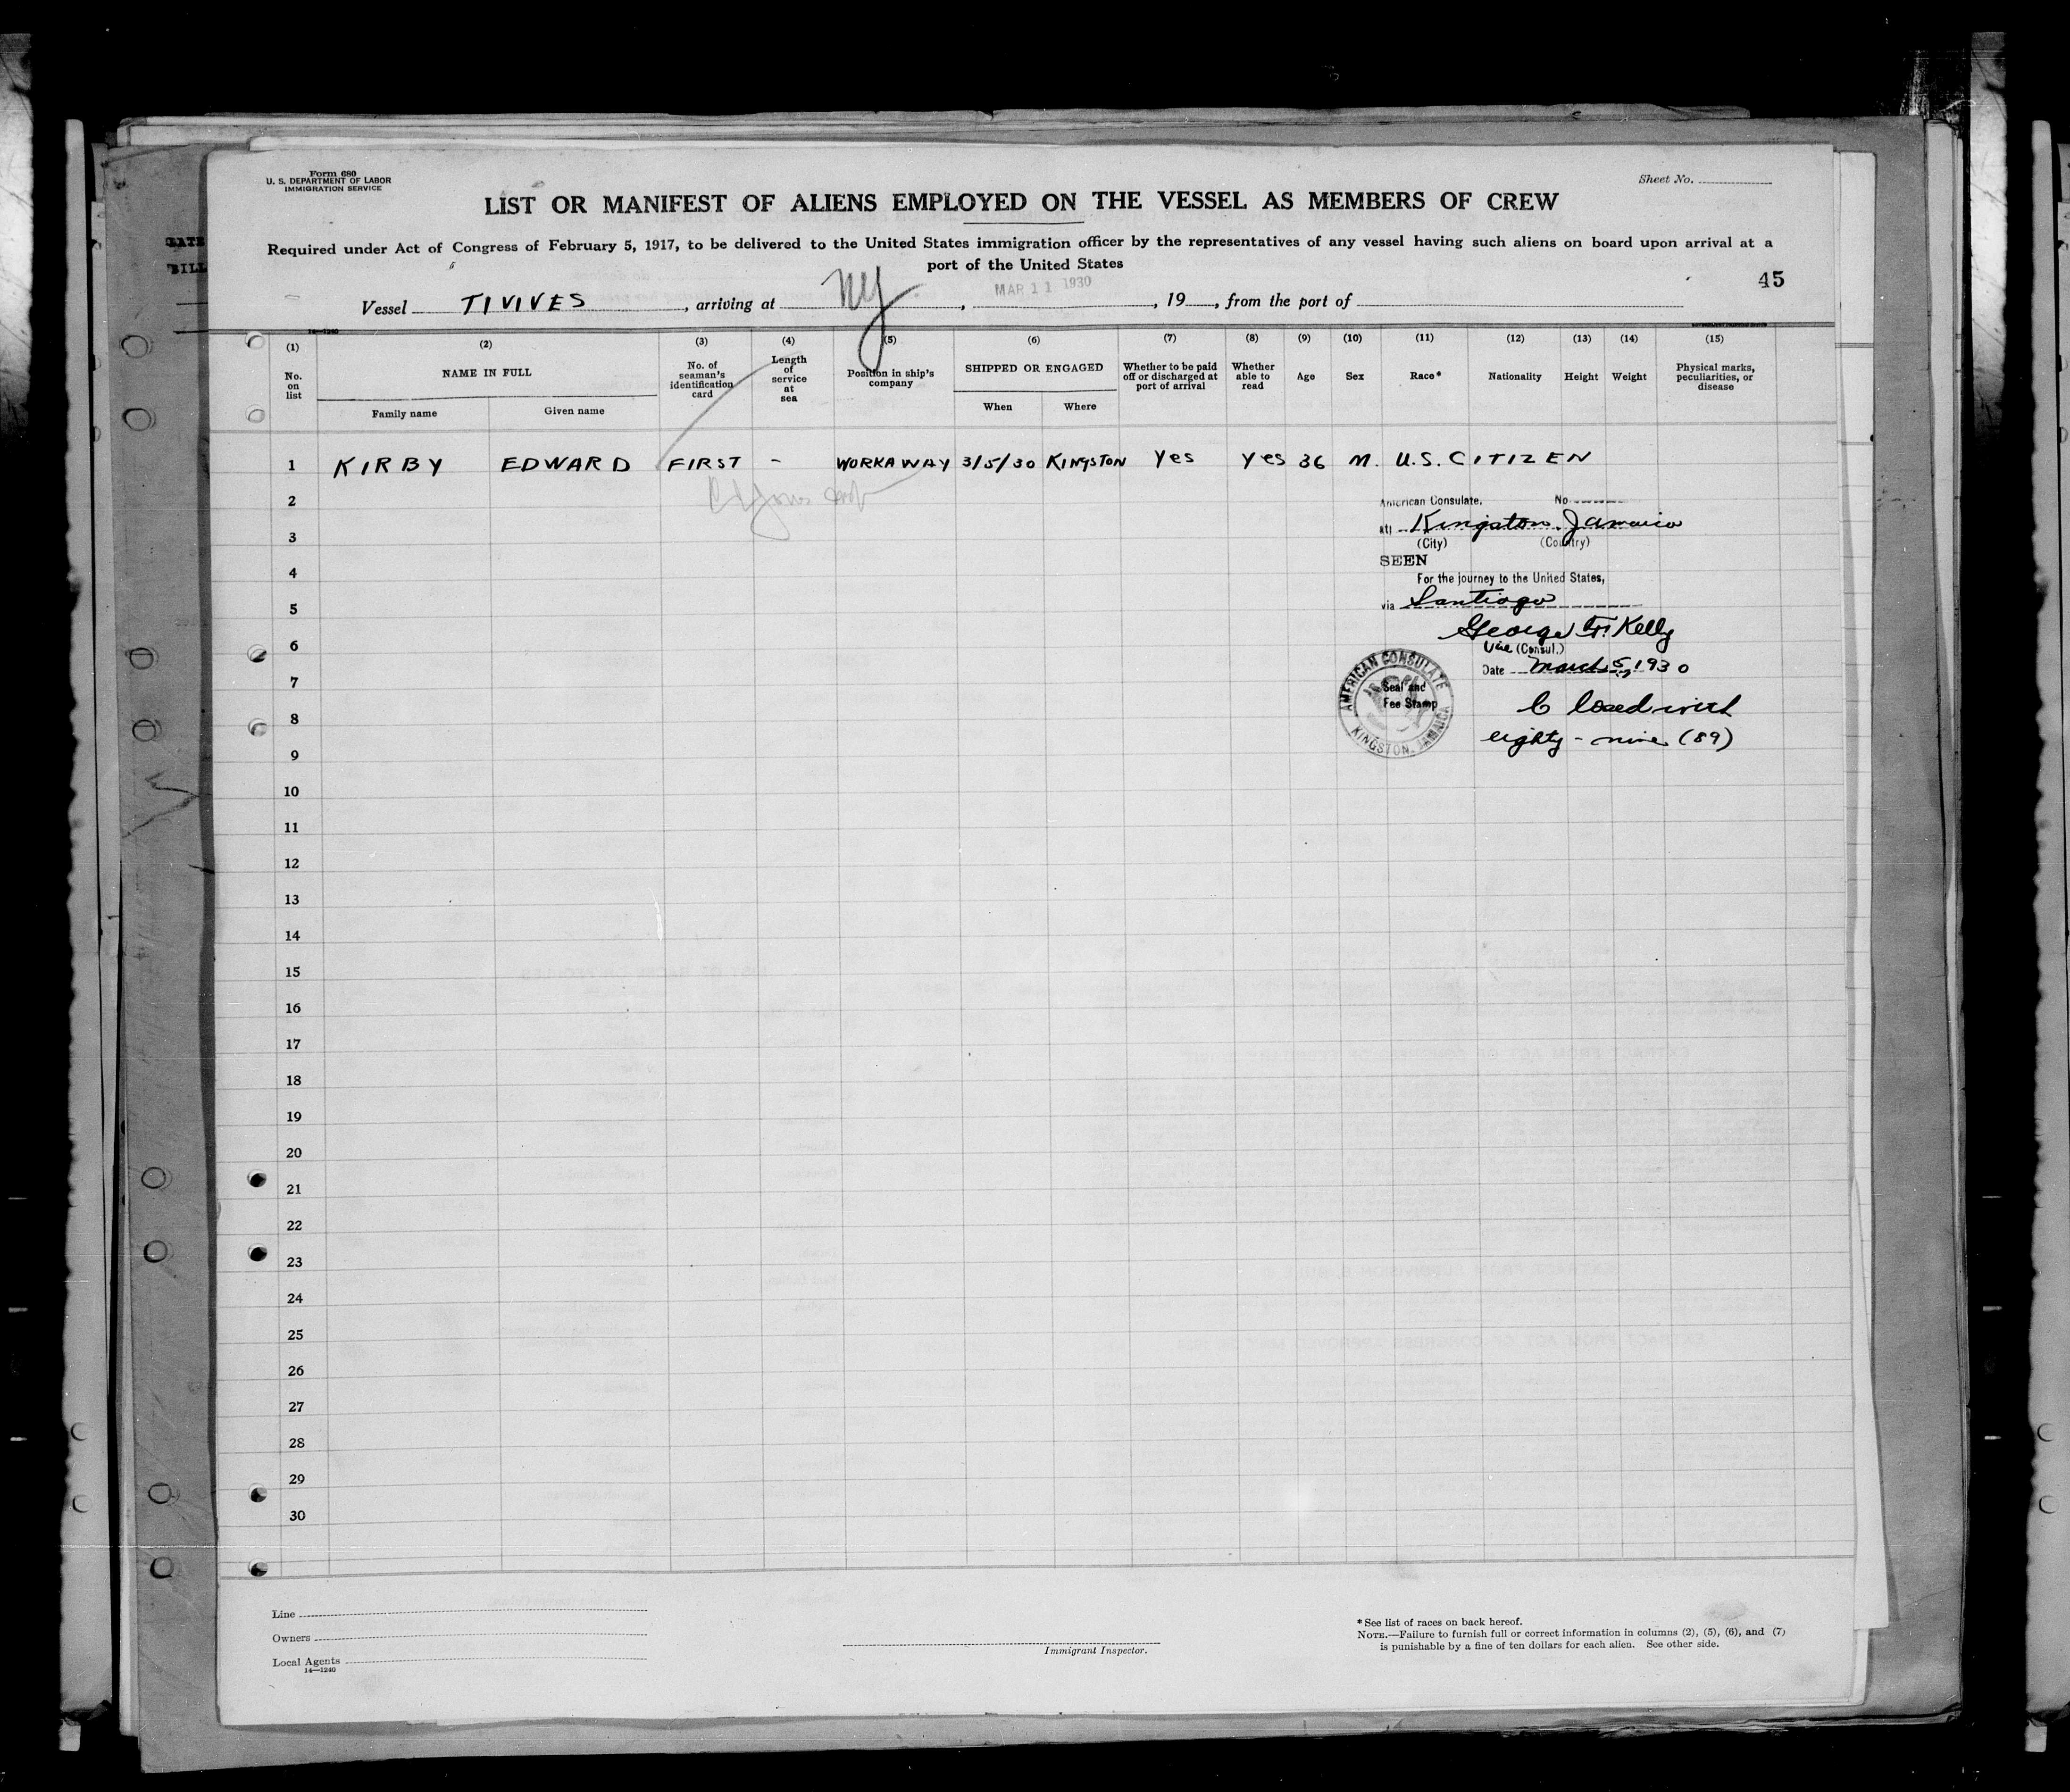 Form 680
U. S. DEPARTMENT OF LABOR
IMMIGRATION SERVICE
Sheet No.
LIST OR MANIFEST OF ALIENS EMPLOYED ON THE VESSEL AS MEMBERS OF CREW
Required under Act of Congress of February 5, 1917, to be delivered to the United States immigration officer by the representatives of any vessel having such aliens on board upon arrival at a
port of the United States
45
Vessel TIVIVES, arriving at NY, MAR 11 1930, 19, from the port of
14—1240
(1) (2) (3) (4) (5) (6) (7) (8) (9) (10) (11) (12) (13) (14) (15)
No. on list
NAME IN FULL
Family name
Given name
No. of seaman's identification card
Length of service at sea
Position in ship's company
SHIPPED OR ENGAGED
When
Where
Whether to be paid off or discharged at port of arrival
Whether able to read
Age
Sex
Race*
Nationality
Height
Weight
Physical marks, peculiarities, or disease
1 KIRBY EDWARD FIRST - WORKAWAY 3/5/30 KINGSTON Yes Yes 36 M. U.S. CITIZEN
2
3
4
5
6
7
8
9
10
11
12
13
14
15
16
17
18
19
20
21
22
23
24
25
26
27
28
29
30
American Consulate, No
at Kingston, Jamaica
(City) (Country)
SEEN
For the journey to the United States,
via Santiago
George F. Kelly
Vice (Consul.)
Date March 5, 1930
AMERICAN CONSULATE
KINGSTON, JAMAICA
Seal and
Fee Stamp
Closed with
eighty-nine (89)
Line
Owners
Local Agents
14—1240
Immigrant Inspector.
* See list of races on back hereof.
NOTE.—Failure to furnish full or correct information in columns (2), (5), (6), and (7)
is punishable by a fine of ten dollars for each alien. See other side.